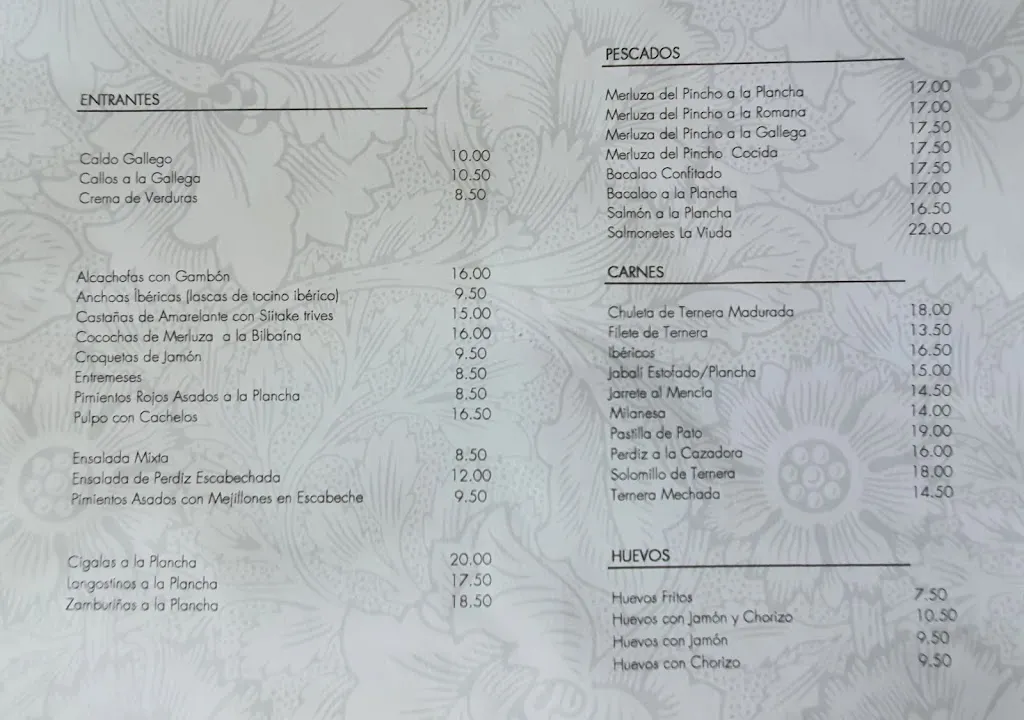 ENTRANTES
Caldo Gallego 10.00
Callos a la Gallega 10.50
Crema de Verduras 8.50
Alcachofas con Gambón 16.00
Anchoas Ibéricas (lascas de tocino ibérico) 9.50
Castañas de Amarelante con Siitake trives 15.00
Cocochas de Merluza a la Bilbaína 16.00
Croquetas de Jamón 9.50
Entremeses 8.50
Pimientos Rojos Asados a la Plancha 8.50
Pulpo con Cachelos 16.50
Ensalada Mixta 8.50
Ensalada de Perdiz Escabechada 12.00
Pimientos Asados con Mejillones en Escabeche 9.50
Cigalas a la Plancha 20.00
Langostinos a la Plancha 17.50
Zamburiñas a la Plancha 18.50
PESCADOS
Merluza del Pincho a la Plancha 17.00
Merluza del Pincho a la Romana 17.00
Merluza del Pincho a la Gallega 17.50
Merluza del Pincho Cocida 17.50
Bacalao Confitado 17.50
Bacalao a la Plancha 17.00
Salmón a la Plancha 16.50
Salmonetes La Viuda 22.00
CARNES
Chuleta de Ternera Madurada 18.00
Filete de Ternera 13.50
Ibéricos 16.50
Jabalí Estofado/Plancha 15.00
Jarrete al Mencía 14.50
Milanesa 14.00
Pastilla de Pato 19.00
Perdiz a la Cazadora 16.00
Solomillo de Ternera 18.00
Ternera Mechada 14.50
HUEVOS
Huevos Fritos 7.50
Huevos con Jamón y Chorizo 10.50
Huevos con Jamón 9.50
Huevos con Chorizo 9.50